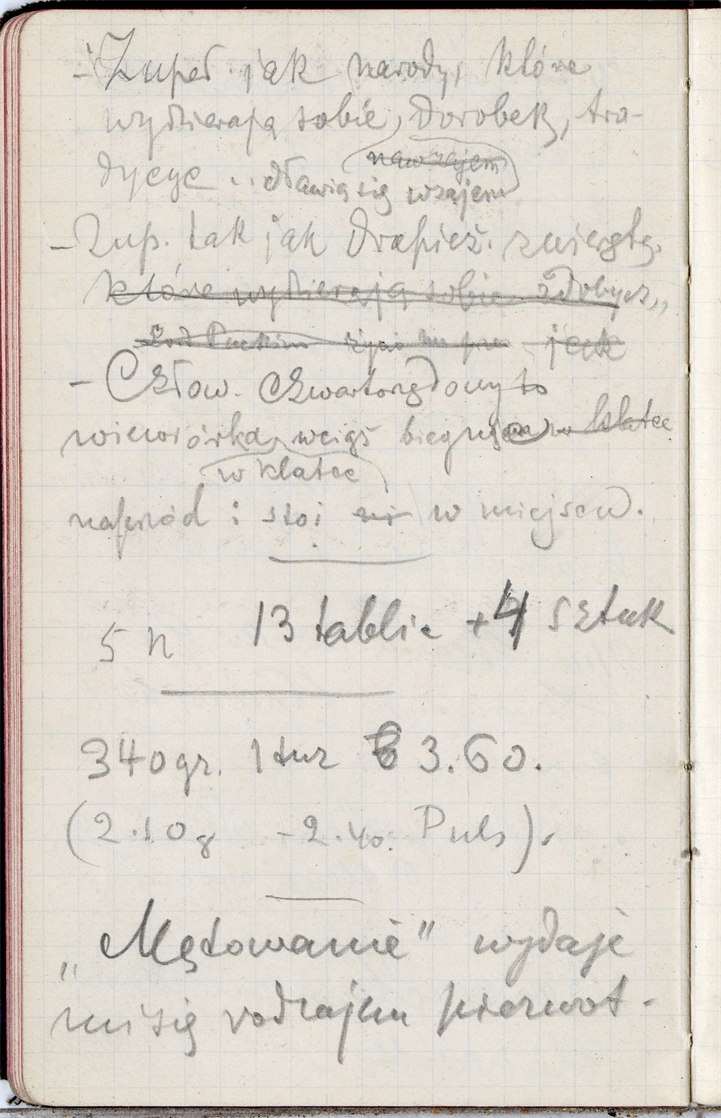 - Zupeł. jak narody, które
wydzierają sobie, dorobek, tra-
dycye .. dławią się wzajem
nawzajem
- Zup. tak jak drapież. zwierzęta,
które wydzierają sobie zdobycz,,
jak
- Człow. czwartorzędowy to
wiewiórka, weiąż biegnąca w klatce
w klatce
naprzód i stoi w miejscu.
5 n 13 tablic + 4 sztuk
340 gr. 1 tuz 3.60.
(2.10 g - 2.40. Puls).
„Mętowanie" wydaje
mi się rodzajem pierwot-